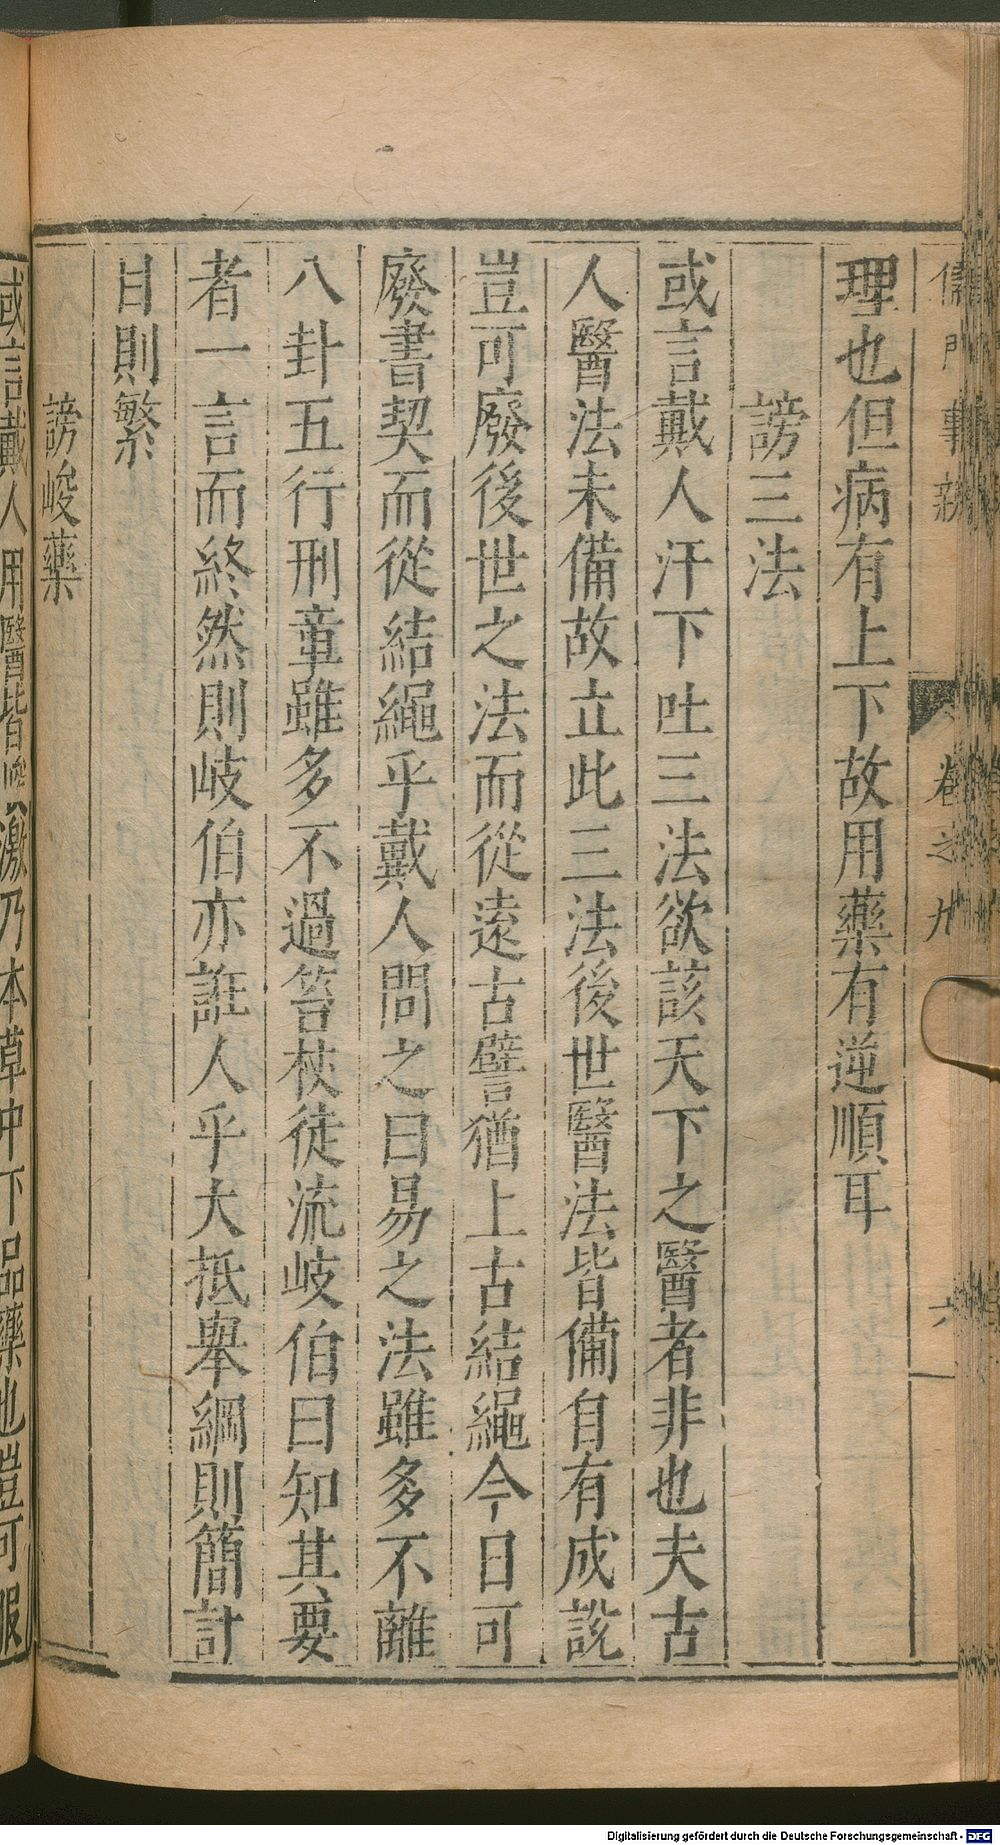 儒門事親 卷之九 六
理也但病有上下故用藥有逆順耳
謗三法
或言戴人汗下吐三法欲該天下之醫者非也夫古
人醫法未備故立此三法後世醫法皆備自有成說
豈可廢後世之法而從遠古譬猶上古結繩今日可
廢書契而從結繩乎戴人問之曰易之法雖多不離
八卦五行刑章雖多不過笞杖徒流岐伯曰知其要
者一言而終然則岐伯亦誑人乎大抵舉綱則簡計
目則繁
謗峻藥
或言戴人用醫皆峻激乃本草中下品藥也豈可服
Digitalisierung gefördert durch die Deutsche Forschungsgemeinschaft - DFG